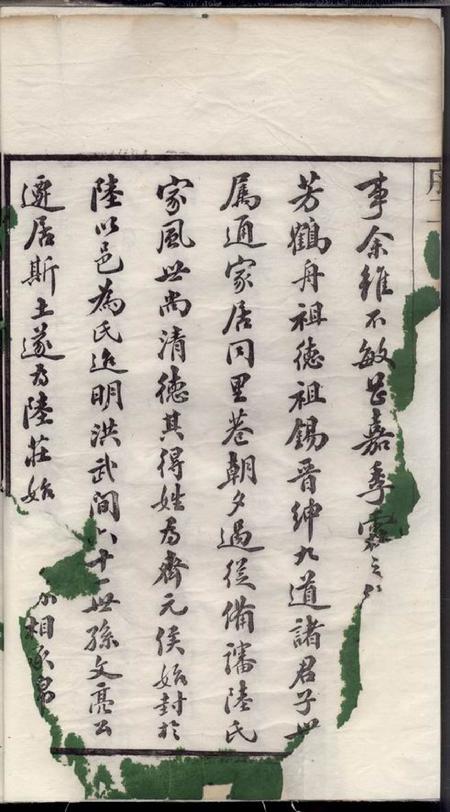 事余雖不敏甚嘉季霖之
芳鶴舟祖德祖錫晋紳九道諸君子世
属通家居同里巷朝夕過從備譜陸氏
家風世尚清德其得姓為齊元侯始封於
陸以邑為氏迄明洪武間六十一世孫文亮公
遷居斯土遂為陸莊始 相承
序二